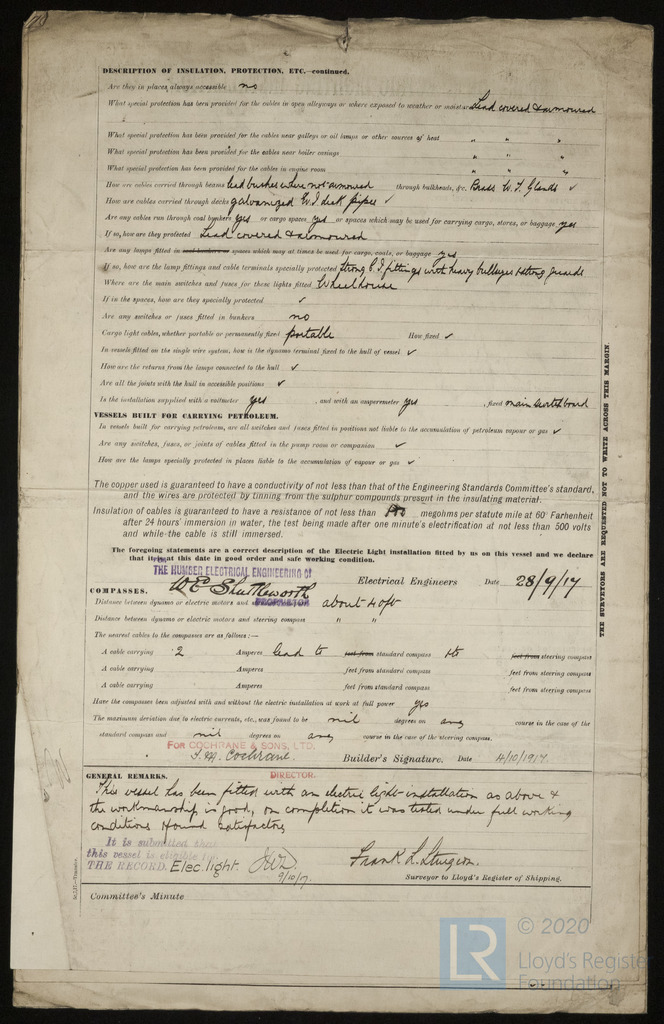 DESCRIPTION OF INSULATION, PROTECTION, ETC.—continued.
Are they in places always accessible no
What special protection has been provided for the cables in open alleyways or where exposed to weather or moisture Lead covered & armoured
What special protection has been provided for the cables near galleys or oil lamps or other sources of heat " " "
What special protection has been provided for the cables near boiler casings " " "
What special protection has been provided for the cables in engine room " " "
How are cables carried through beams lead bushes where not armoured through bulkheads, &c. Brass W.T. Glands ✓
How are cables carried through decks galvanized W.I deck pipes ✓
Are any cables run through coal bunkers yes or cargo spaces yes or spaces which may be used for carrying cargo, stores, or baggage yes
If so, how are they protected Lead covered & armoured
Are any lamps fitted in coal bunkers or spaces which may at times be used for cargo, coals, or baggage yes
If so, how are the lamp fittings and cable terminals specially protected strong C.I fittings with heavy bullseyes & strong guards
Where are the main switch and fuses for these lights fitted Wheelhouse
If in the spaces, how are they specially protected ✓
Are any switches or fuses fitted in bunkers no
Cargo light cables, whether portable or permanently fixed portable How fixed ✓
In vessels fitted on the single wire system, how is the dynamo terminal fixed to the hull of vessel ✓
How are the returns from the lamps connected to the hull ✓
Are all the joints with the hull in accessible positions ✓
Is the installation supplied with a voltmeter yes , and with an amperemeter yes , fixed main switchboard
VESSELS BUILT FOR CARRYING PETROLEUM.
In vessels built for carrying petroleum, are all switches and fuses fitted in positions not liable to the accumulation of petroleum vapour or gas ✓
Are any switches, fuses, or joints of cables fitted in the pump room or companion ✓
How are the lamps specially protected in places liable to the accumulation of vapour or gas ✓
The copper used is guaranteed to have a conductivity of not less than that of the Engineering Standards Committee's standard,
and the wires are protected by tinning from the sulphur compounds present in the insulating material.
Insulation of cables is guaranteed to have a resistance of not less than megohms per statute mile at 60° Farhenheit
after 24 hours' immersion in water, the test being made after one minute's electrification at not less than 500 volts
and while the cable is still immersed.
The foregoing statements are a correct description of the Electric Light installation fitted by us on this vessel and we declare
that it is at this date in good order and safe working condition.
THE HUMBER ELECTRICAL ENGINEERING Co
W E Shuttleworth Electrical Engineers Date 28/9/17
PROPRIETOR
COMPASSES.
Distance between dynamo or electric motors and about 40 ft
Distance between dynamo or electric motors and steering compass " "
The nearest cables to the compasses are as follows:—
A cable carrying 2 Amperes lead to feet from standard compass & to feet from steering compass
A cable carrying Amperes feet from standard compass feet from steering compass
A cable carrying Amperes feet from standard compass feet from steering compass
Have the compasses been adjusted with and without the electric installation at work at full power yes
The maximum deviation due to electric currents, etc., was found to be nil degrees on any course in the case of the
standard compass and nil degrees on any course in the case of the steering compass.
FOR COCHRANE & SONS, LTD.
J.M. Cochrane. Builder's Signature. Date 4/10/1917.
DIRECTOR.
GENERAL REMARKS.
This vessel has been fitted with an electric light installation as above &
the workmanship is good, on completion it was tested under full working
conditions & found satisfactory
It is submitted that
this vessel is eligible for
THE RECORD. Elec. light. 9/10/17
Frank L. Sturgeon.
Surveyor to Lloyd's Register of Shipping.
Committee's Minute
THE SURVEYORS ARE REQUESTED NOT TO WRITE ACROSS THIS MARGIN.
LR
© 2020
Lloyd's Register
Foundation